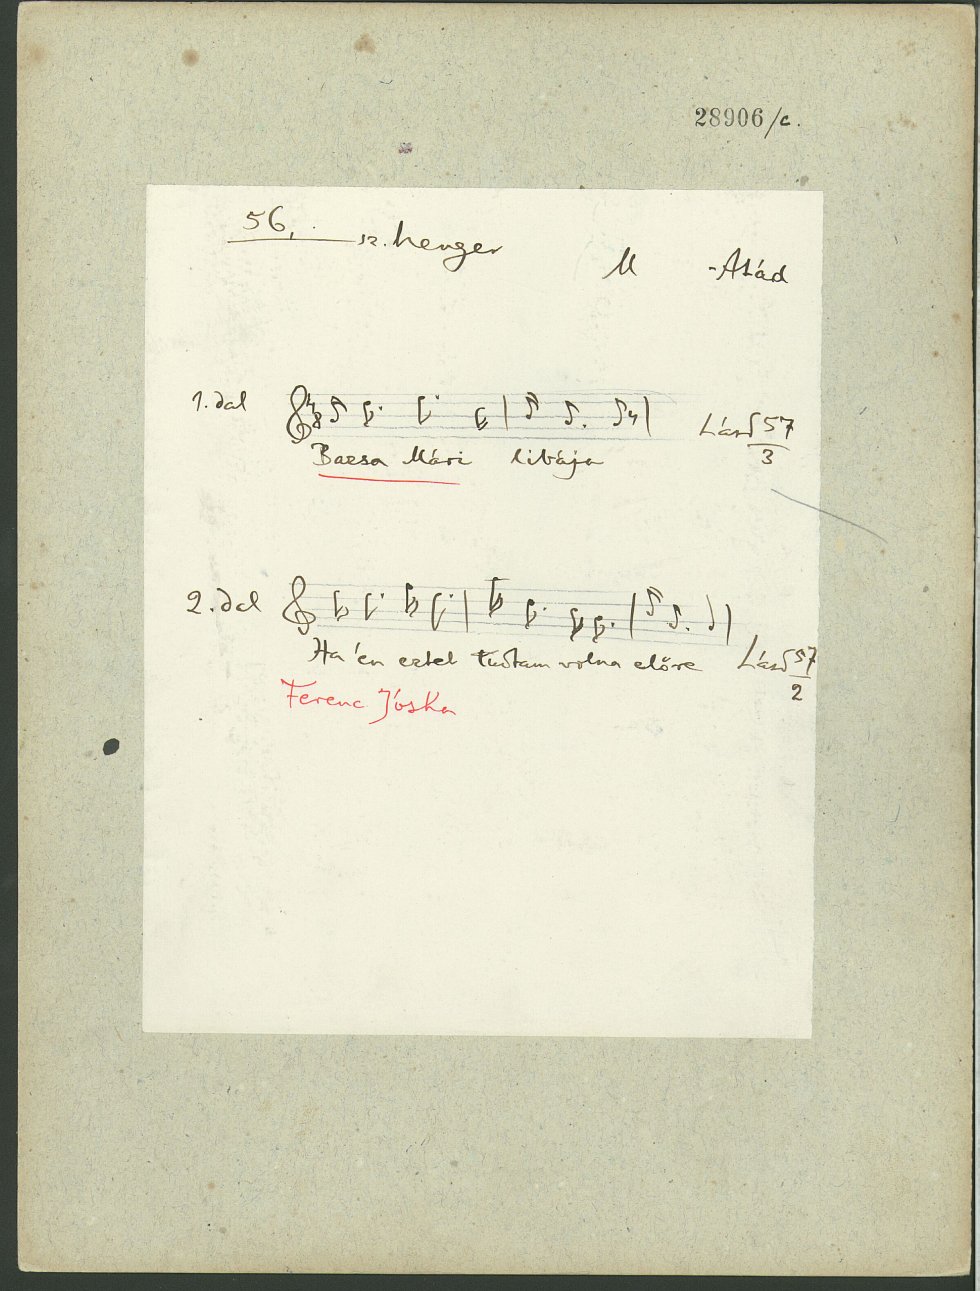 28906/c.
56. sz. henger
M -Atád
1. dal
4/8
Bacsa Mári libája
Lásd 57/3
2. dal
Ha én eztet tudtam volna előre
Lásd 57/2
Ferenc Jóska